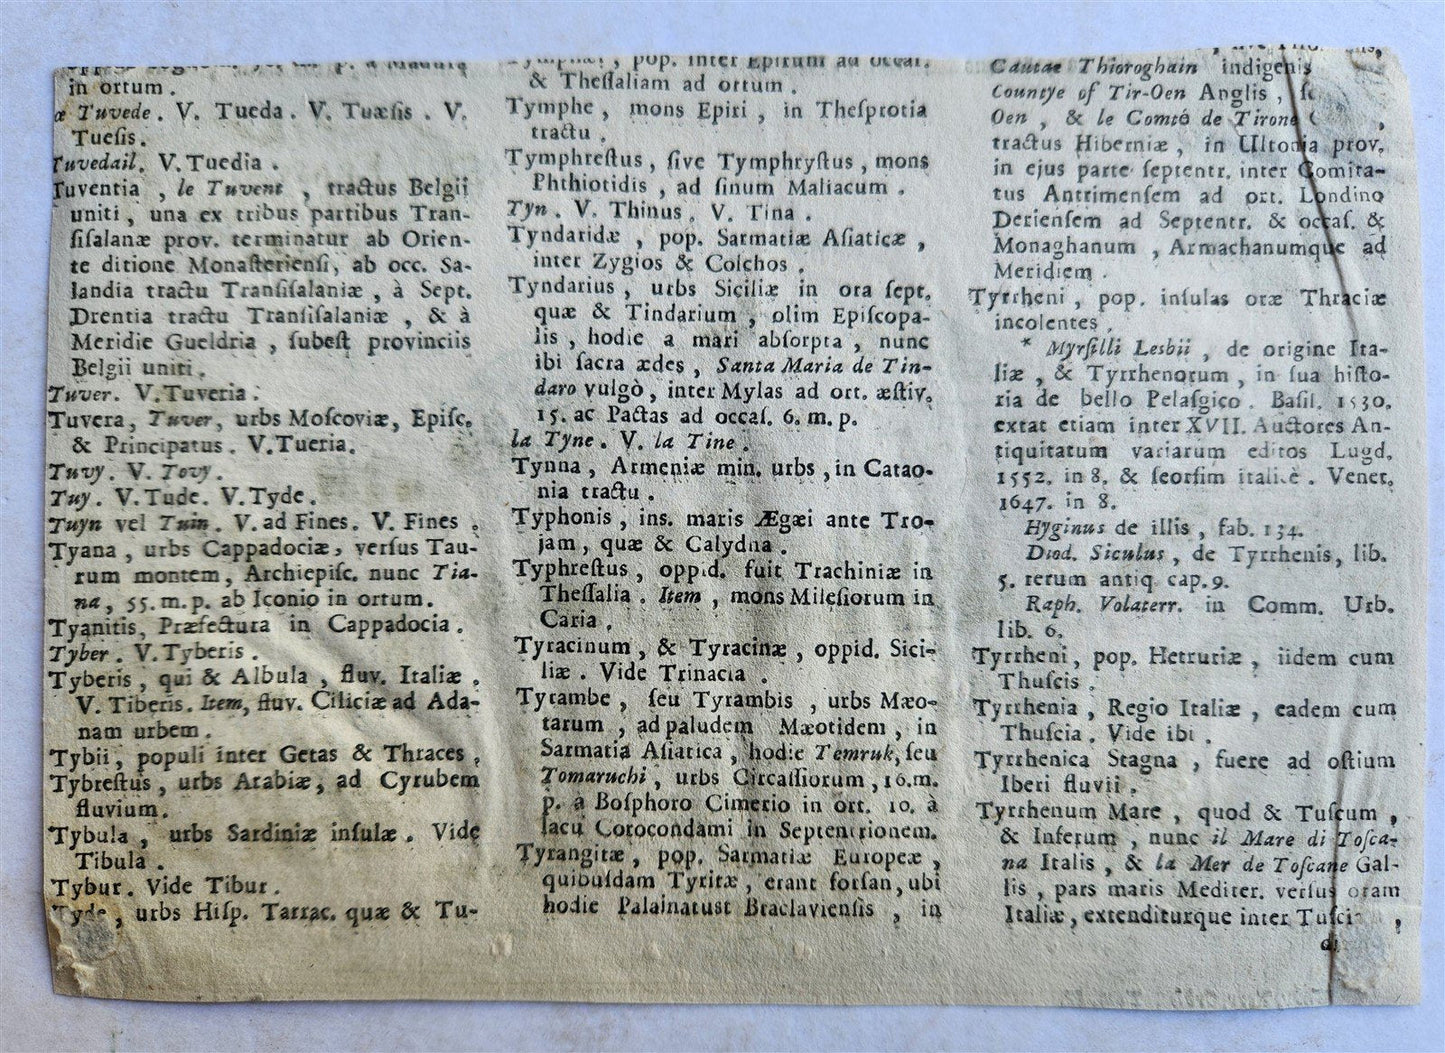 p. a Madura
in ortum.
æ Tuvede. V. Tueda. V. Tuæsis. V.
Tuesis.
Tuvedail. V. Tuedia.
Tuventia, le Tuvent, tractus Belgii
uniti, una ex tribus partibus Tran-
ſiſalanæ prov. terminatur ab Orien-
te ditione Monaſterienſi, ab occ. Sa-
landia tractu Tranſiſalaniæ, à Sept.
Drentia tractu Tranſiſalaniæ, & à
Meridie Gueldria, ſubeſt provinciis
Belgii uniti.
Tuver. V. Tuveria.
Tuvera, Tuver, urbs Moſcoviæ, Epiſc.
& Principatus. V. Tueria.
Tuvy. V. Tovy.
Tuy. V. Tude. V. Tyde.
Tuyn vel Tuin. V. ad Fines. V. Fines.
Tyana, urbs Cappadociæ, verſus Tau-
rum montem, Archiepiſc. nunc Tia-
na, 55. m. p. ab Iconio in ortum.
Tyanitis, Præfectura in Cappadocia.
Tyber. V. Tyberis.
Tyberis, qui & Albula, fluv. Italiæ.
V. Tiberis. Item, fluv. Ciliciæ ad Ada-
nam urbem.
Tybii, populi inter Getas & Thraces.
Tybreſtus, urbs Arabiæ, ad Cyrubem
fluvium.
Tybula, urbs Sardiniæ inſulæ. Vide
Tibula.
Tybur. Vide Tibur.
Tyde, urbs Hiſp. Tarrac. quæ & Tu-
pop. inter Epirum ad occaſ.
& Theſſaliam ad ortum.
Tymphe, mons Epiri, in Theſprotia
tractu.
Tymphreſtus, ſive Tymphryſtus, mons
Phthiotidis, ad ſinum Maliacum.
Tyn. V. Thinus. V. Tina.
Tyndaridæ, pop. Sarmatiæ Aſiaticæ,
inter Zygios & Colchos.
Tyndarius, urbs Siciliæ in ora ſept.
quæ & Tindarium, olim Epiſcopa-
lis, hodie a mari abſorpta, nunc
ibi ſacra ædes, Santa Maria de Tin-
daro vulgò, inter Mylas ad ort. æſtiv.
15. ac Pactas ad occaſ. 6. m. p.
la Tyne. V. la Tine.
Tynna, Armeniæ min. urbs, in Catao-
nia tractu.
Typhonis, ins. maris Ægæi ante Tro-
jam, quæ & Calydna.
Typhreſtus, oppid. fuit Trachiniæ in
Theſſalia. Item, mons Mileſiorum in
Caria.
Tyracinum, & Tyracinæ, oppid. Sici-
liæ. Vide Trinacia.
Tyrambe, ſeu Tyrambis, urbs Mæo-
tarum, ad paludem Mæotidem, in
Sarmatia Aſiatica, hodie Temruk, ſeu
Tomaruchi, urbs Circaſſiorum, 10. m.
p. a Boſphoro Cimerio in ort. 10. à
lacu Corocondami in Septentrionem.
Tyrangitæ, pop. Sarmatiæ Europeæ,
quibuſdam Tyritæ, erant forſan, ubi
hodie Palatinatust Braclavienſis, in
Cautae Thioroghain indigenis
Countye of Tir-Oen Anglis,
Oen, & le Comté de Tirone
tractus Hiberniæ, in Ultonia prov.
in ejus parte ſeptentr. inter Comita-
tus Antrimenſem ad ort. Londino
Derienſem ad Septentr. & occaſ. &
Monaghanum, Armachanumque ad
Meridiem.
Tyrrheni, pop. inſulas oræ Thraciæ
incolentes.
* Myrſilli Lesbii, de origine Ita-
liæ, & Tyrrhenorum, in ſua hiſto-
ria de bello Pelaſgico. Baſil. 1530.
extat etiam inter XVII. Auctores An-
tiquitatum variarum editos Lugd.
1552. in 8. & ſeorſim italicè. Venet.
1647. in 8.
Hyginus de illis, fab. 134.
Diod. Siculus, de Tyrrhenis, lib.
5. rerum antiq. cap. 9.
Raph. Volaterr. in Comm. Urb.
lib. 6.
Tyrrheni, pop. Hetruriæ, iidem cum
Thuſcis.
Tyrrhenia, Regio Italiæ, eadem cum
Thuſcia. Vide ibi.
Tyrrhenica Stagna, fuere ad oſtium
Iberi fluvii.
Tyrrhenum Mare, quod & Tuſcum,
& Inferum, nunc il Mare di Toſca-
na Italis, & la Mer de Toſcane Gal-
lis, pars maris Mediter. verſus oram
Italiæ, extenditurque inter Tuſci